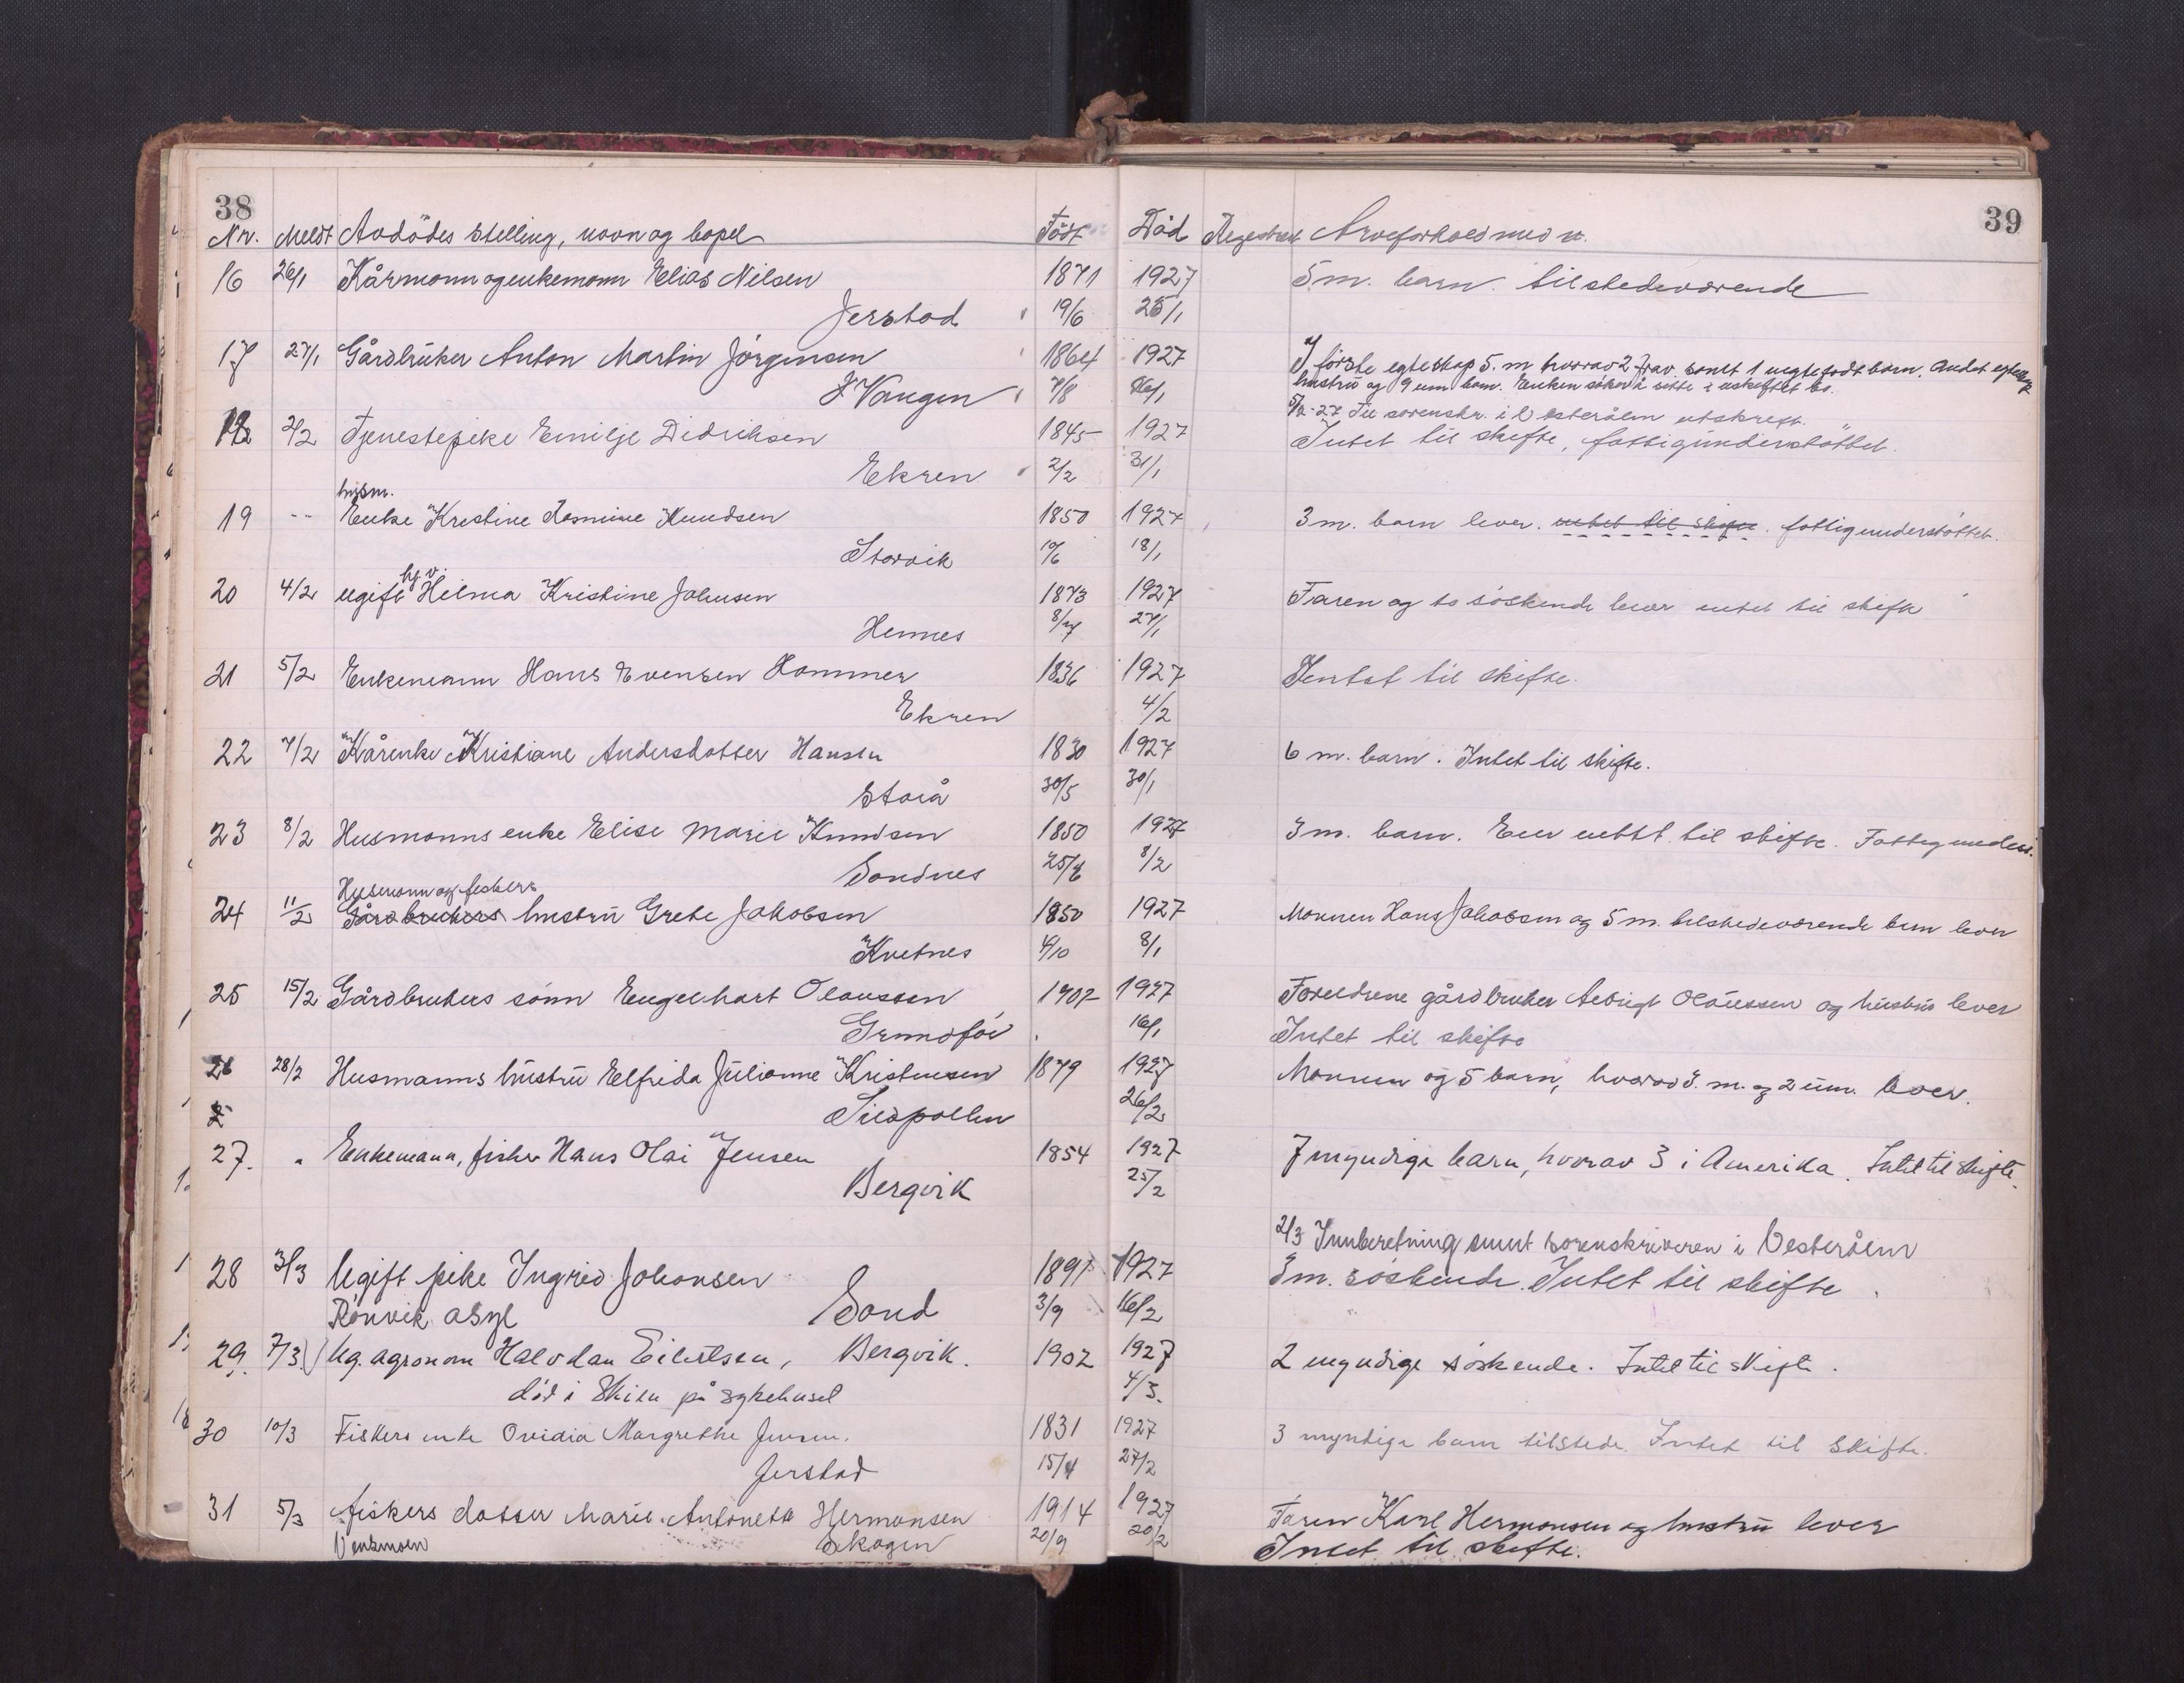 38
Nr. Meldt Avdödes stilling, navn og bopel Födt Död Registrert Arveforhold med m. 39
16 26/1 Kårmann og enkemann Elias Nilsen 1871 1927 5 m. barn. tilstedeværende
Jerstad 19/6 25/1
17 27/1 Gårdbruker Anton Martin Jörgensen 1864 1927 I förste egteskap 5. m hvorav 2 frav. samt 1 uegtefödt barn. Andet egteskap
Vangen 7/8 26/1 hustrü og 9 um barn. Enken söker å sitte i uskiftet bo.
5/2-27 Til sorenskr. i Vesterålen utskrift.
18 2/2 Tjenestepike Emilje Didriksen 1845 1927 Intet til skifte, fattigunderstöttet.
Ekren 2/2 31/1
husm.
19 -- Enke Kristine Knudsen 1850 1927 3 m. barn lever. intet til skifte. fattigunderstöttet.
Storvik 10/6 18/1
20 4/2 ugift Hilma Kristine Johnsen 1873 1927 Faren og to söskende lever intet til skifte
Hennes 8/7 27/1
21 5/2 Enkemann Hans Evensen Hammer 1836 1927 Intet til skifte.
Ekren 4/2
22 7/2 Kårenke Kristiane Andersdatter Hansen 1830 1927 6 m. barn. Intet til skifte.
Storå 30/5 30/1
23 8/2 Husmanns enke Elise Marie Knudsen 1850 1927 3 m. barn. Eier intet til skifte. Fattigunders.
Sandnes 25/6 8/2
Husmann og fiskers
24 11/2 Gårdbrukers hustrü Grete Jakobsen 1850 1927 Mannen Hans Jakobsen og 5 m. tilstedeværende barn lever
Kvitnes 4/10 8/1
25 15/2 Gårdbrukers sönn Engelhart Olaussen 1902 1927 Foreldrene gårdbruker Olaüssen og hüstrü lever
Grundför 16/1 Intet til skifte
26 28/2 Husmanns hüstrü Elfrida Jülianne Kristensen 1879 1927 Mannen og 5 barn, hvorav 3. m. og 2 üm. lever.
2 Sildpollen 26/2
27. " Enkemann, fisker Hans Olai Jensen 1854 1927 7 myndige barn, hvorav 3 i Amerika. Intet til skifte.
Bergvik 25/2
2/3 Innberetning sendt sorenskriveren i Vesterålen
28 3/3 Ugift pike Ingrid Johansen 1897 1927 3 m. söskende. Intet til skifte.
Rönvik asyl Sand 3/9 16/2
29. 7/3. Ug. agronom Halvdan Eilertsen, Bergvik. 1902 1927 2 myndige söskende. Intet til skifte.
död i Skien på sykehuset 4/3.
30 10/3 Fiskers enke Ovidia Margrethe Jensen. 1831 1927 3 myndige barn tilstede. Intet til skifte.
Jerstad 15/4 27/2
31 5/3 Fiskers datter Marie Antonette Hermansen 1914 1927 Faren Karl Hermansen og hustrü lever
Skogen 20/9 20/2 Intet til skifte.